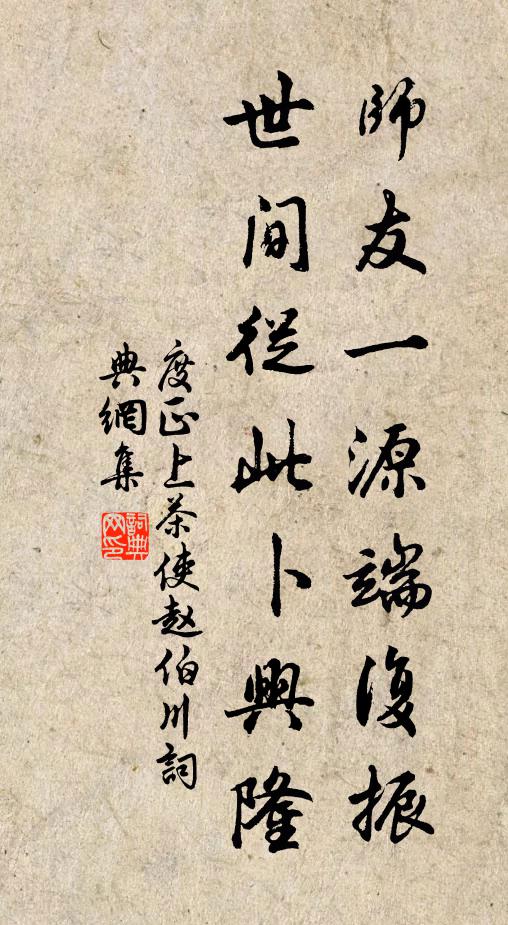 師友一源端復振
世間從此卜興隆
度正上茶使赵伯川詞
典網集
詞典网印